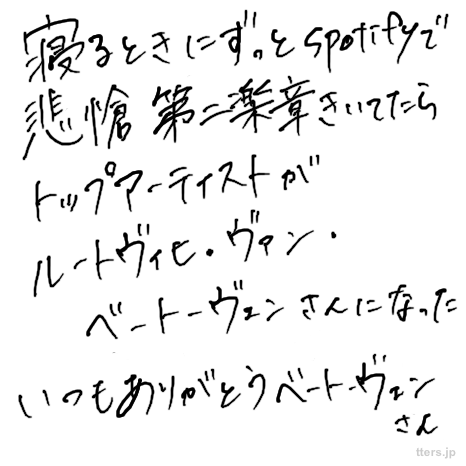 寝るときにずっとspotifyで
悲愴 第二楽章きいてたら
トップアーティストが
ルートヴィヒ・ヴァン・
ベートーヴェンさんになった
いつもありがとうベートーヴェン
さん
tters.jp